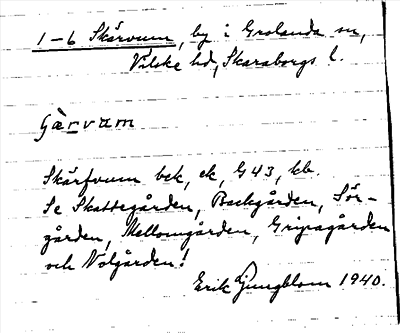 1-6 Skärvum, by i Grolanda sn,
Vilske hd, Skaraborgs l.
Skärfvum bek, ek, G43, kb.
Se Skattegården, Backgården, Sör-
gården, Mellomgården, Gripagården
och Nolgården!
Erik Ljungblom 1940.